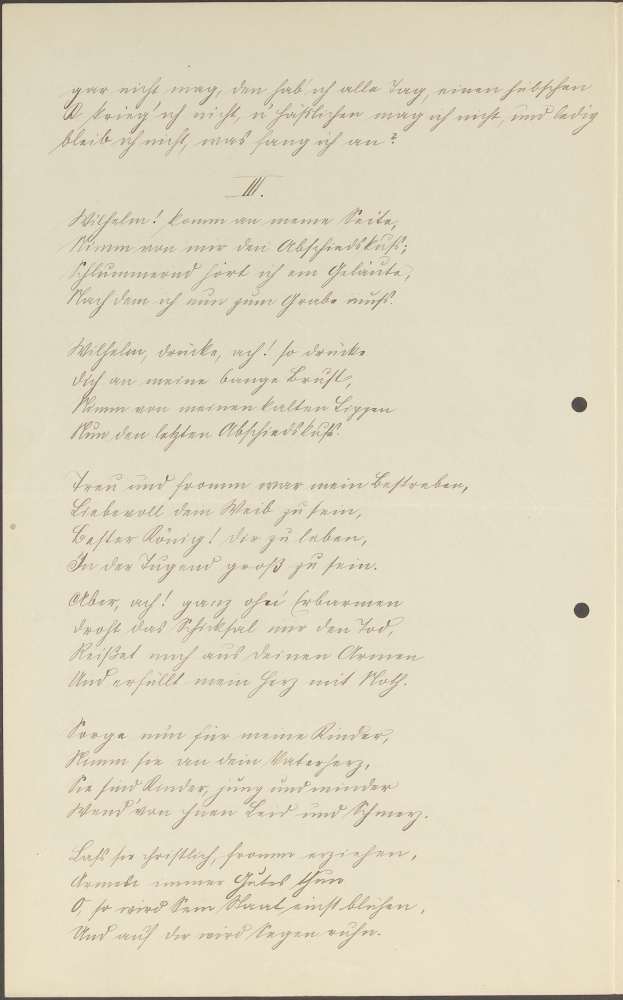 gar nicht mag, den hab' ich alle Tag, einen hübschen
krieg' ich nicht, n' häßlichen mag ich nicht, und ledig
bleib ich nicht, was fang ich an?
III.
Wilhelm! komm an meine Seite,
Nimm von mir den Abschiedskuß;
Schlummernd hört ich ein Geläute,
Nach dem ich nun zum Grabe muß.
Wilhelm, drücke, ach! so drücke
Dich an meine bange Brust,
Nimm von meinen kalten Lippen
Nun den letzten Abschiedskuß.
Treu und fromm war mein Bestreben,
Liebevoll dem Weib zu sein,
Bester König! dir zu leben,
In der Tugend groß zu sein.
Aber, ach! ganz ohn' Erbarmen
Droht das Schicksal mir den Tod,
Reißet mich aus deinen Armen
Und erfüllt mein Herz mit Noth.
Sorge nun für meine Kinder,
Nimm sie an dein Vaterherz,
Sie sind Kinder, jung und minder
Wend' von ihnen Leid und Schmerz.
Laß sie christlich, fromm erziehen,
immer Gutes thun
O, so wird Dein Staat einst blühen,
Und auf dir wird Segen ruhn.